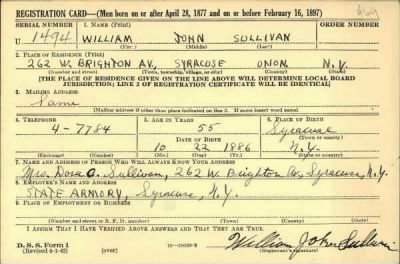 REGISTRATION CARD—(Men born on or after April 28, 1877 and on or before February 16, 1897)
SERIAL NUMBER 1. NAME (Print) ORDER NUMBER
U 1494 WILLIAM JOHN SULLIVAN
(First) (Middle) (Last)
2. PLACE OF RESIDENCE (Print)
262 W. BRIGHTON AV., SYRACUSE ONON. N.Y.
(Number and street) (Town, township, village, or city) (County) (State)
[THE PLACE OF RESIDENCE GIVEN ON THE LINE ABOVE WILL DETERMINE LOCAL BOARD
JURISDICTION; LINE 2 OF REGISTRATION CERTIFICATE WILL BE IDENTICAL]
3. MAILING ADDRESS
Same
[Mailing address if other than place indicated on line 2. If same insert word same]
4. TELEPHONE 5. AGE IN YEARS 6. PLACE OF BIRTH
4-7784 55 Syracuse
DATE OF BIRTH (Town or county)
10 22 1886 N.Y.
(Mo.) (Day) (Yr.) (State or country)
7. NAME AND ADDRESS OF PERSON WHO WILL ALWAYS KNOW YOUR ADDRESS
Mrs. Dora C. Sullivan, 262 W. Brighton Av, Syracuse, N.Y.
8. EMPLOYER'S NAME AND ADDRESS
STATE ARMORY, Syracuse, N.Y.
9. PLACE OF EMPLOYMENT OR BUSINESS
(Number and street or R. F. D. number) (Town) (County) (State)
I AFFIRM THAT I HAVE VERIFIED ABOVE ANSWERS AND THAT THEY ARE TRUE.
D. S. S. Form 1
(Revised 4-1-42) (over) William John Sullivan
(Registrant's signature)